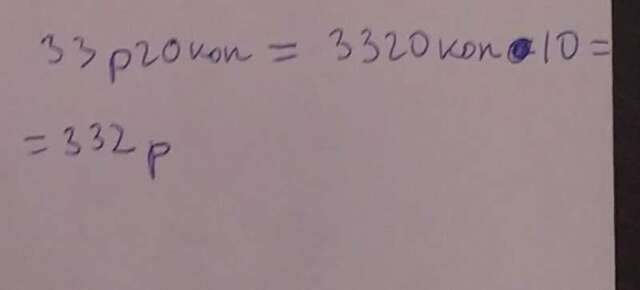 33р20коп = 3320коп•10=
=332р